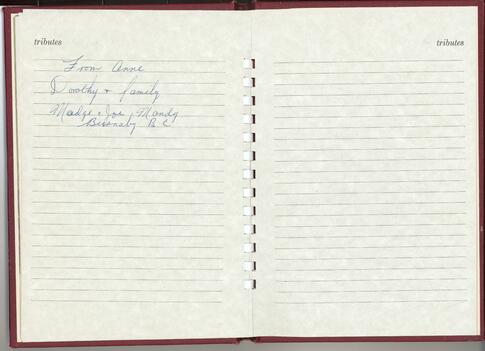 tributes
From Anne
Dorothy + family
Madge + Joe, Mandy
Burnaby B.C.
tributes